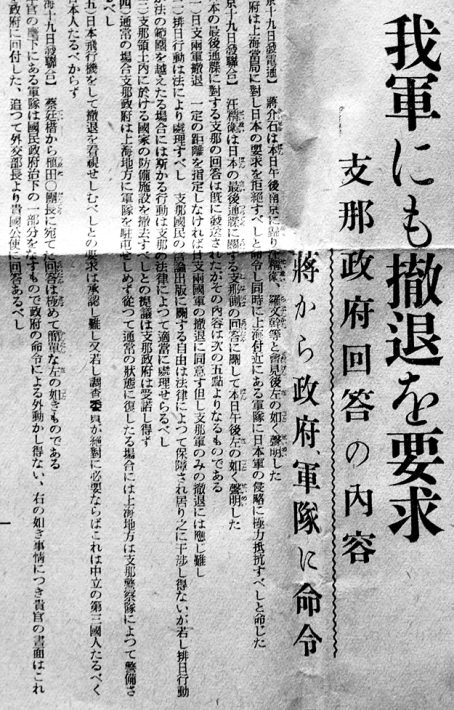 我軍にも撤退を要求
支那政府回答の內容
蔣から政府、軍隊に命令
京十九日發電通】蔣介石は本日午後南京に
府は上海當局に對し日本の要求を拒絕すべしと命令し同時に上海付近にある軍隊に日本軍の侵略に極力抵抗すべしと命じた
京十九日發聯合】汪精衞は日本の最後通牒に關する支那側の回答に關して本日午後左の如く聲明した
本の最後通牒に對する支那の回答は既に發送されたがその內容は次の五點よりなるものである
一)日支兩軍撤退 一定の距離を指定しなければ日支兩國軍の撤退に同意す但し支那軍のみの撤退には應じ難し
二)排日行動は法により處理すべし 支那國民の言論出版に關する自由は法律によつて保障され居り之に干涉し得ないが若し排日行動
が法の範圍を越えたる場合には斯かる行動は支那の法律によつて適當に處理せらるべし
三)支那領土內に於ける國家の防備施設を撤去すべしとの提議は支那政府は受諾し得ず
四)通常の場合支那政府は上海地方に軍隊を駐屯せしめず從つて通常の狀態に復したる場合には上海地方は支那警察隊によつて警備さ
るべし
五)日本飛行機をして撤退を看視せしむべしとの要求は承認し難し又若し調査委員が絕對に必要ならばこれは中立の第三國人たるべく
日本人たるべからず
海十九日發聯合】蔡廷楷から植田〇團長に宛てた回答は極めて簡單な左の如きものである
官の麾下にある軍隊は國民政府治下の一部分をなすもので政府の命令による外動かし得ない、右の如き事情につき貴官の書面はこれ
政府に回付した、追つて外交部長より貴國公使に回答あるべし